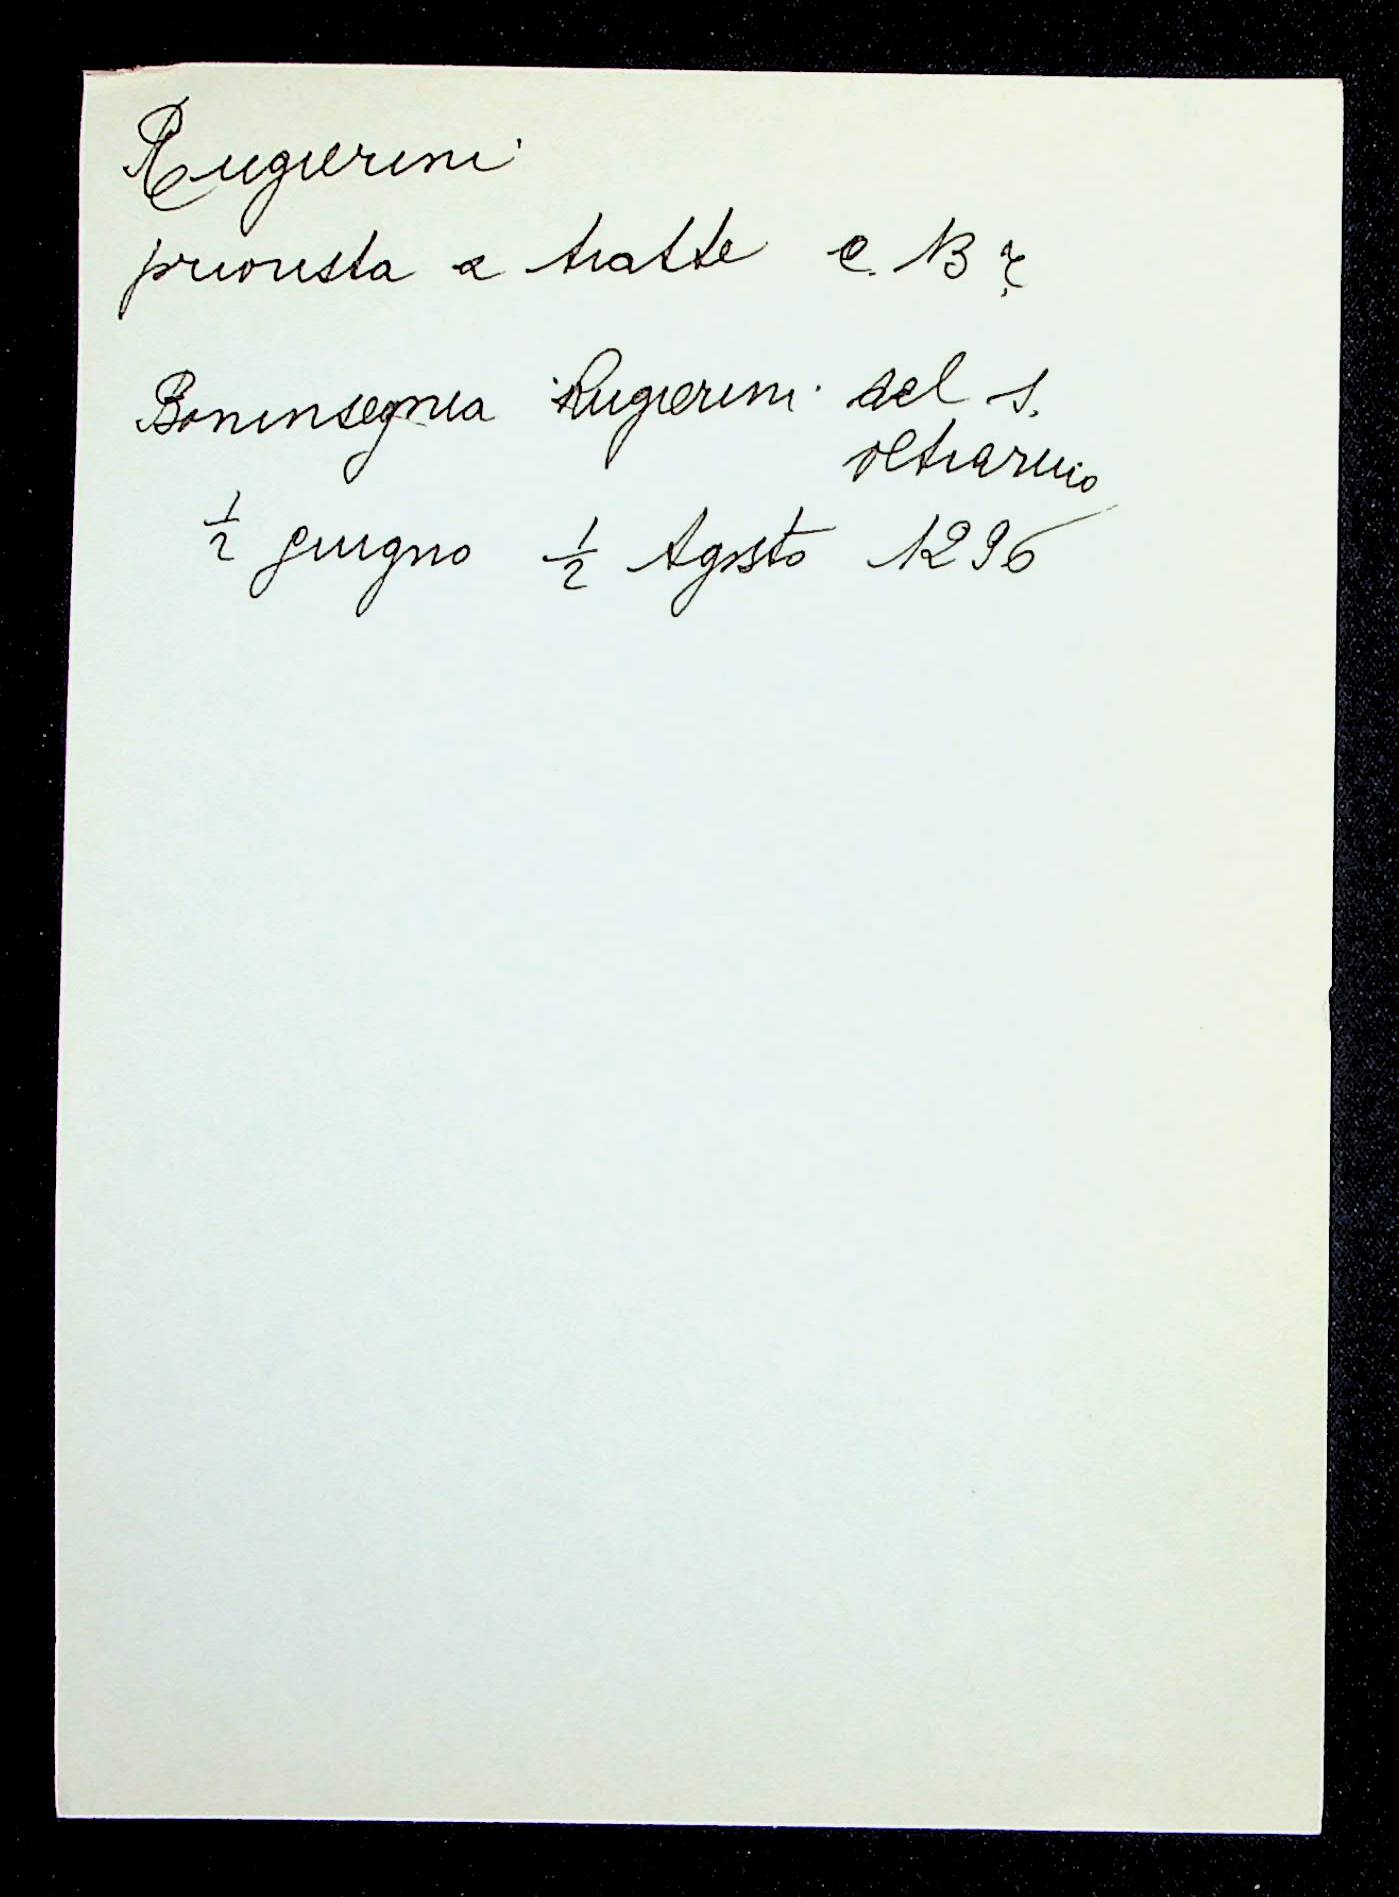 Rugierini
priorista a tratte c. 13 r.
Boninsegnia Rugierini del s.
oltrarno
1/2 giugno 1/2 Agosto 1296